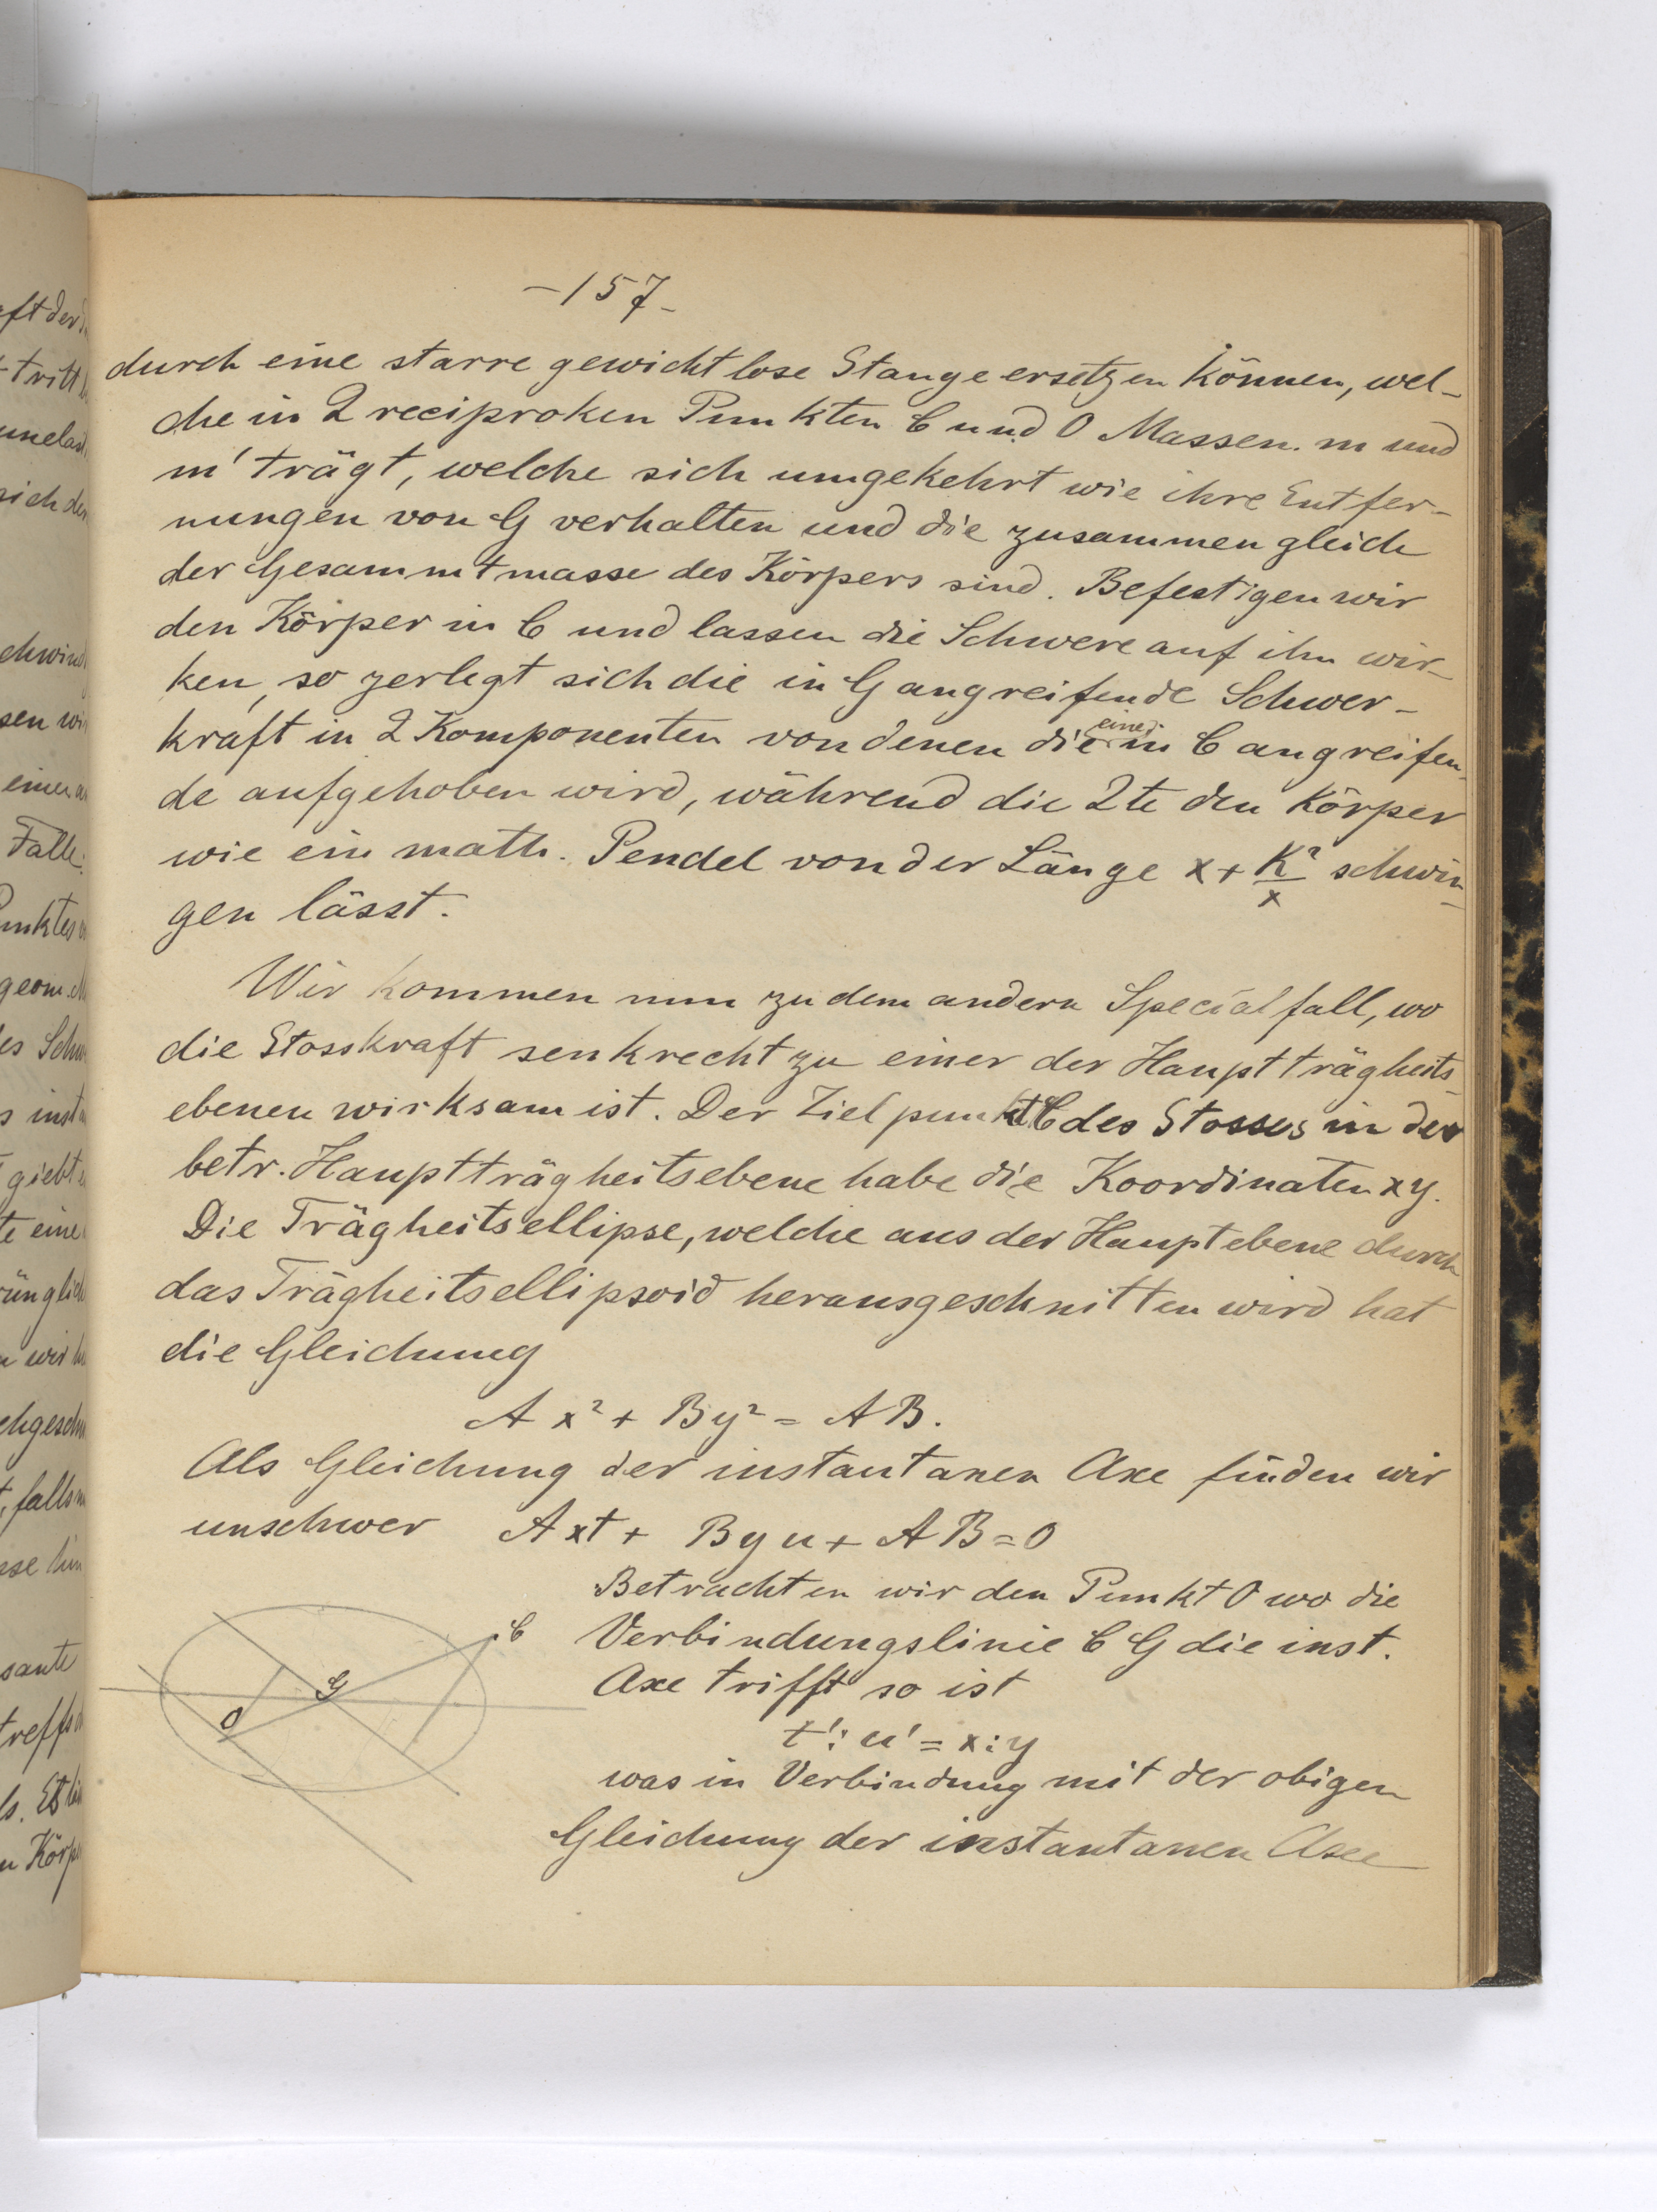 -157-
durch eine starre gewichtlose Stange ersetzen können, wel-
che in 2 reciproken Punkten C und O Massen. m und
m' trägt, welche sich umgekehrt wie ihre Entfer-
nungen von G verhalten und die zusammen gleich
der Gesammtmasse des Körpers sind. Befestigen wir
den Körper in C und lassen die Schwere auf ihn wir-
ken, so zerlegt sich die in G angreifende Schwer-
kraft in 2 Komponenten von denen die eine in C angreifen-
de aufgehoben wird, während die 2te den Körper
wie ein math. Pendel von der Länge x + K²/x schwin-
gen lässt.
Wir kommen nun zu dem andern Specialfall, wo
die Stosskraft senkrecht zu einer der Hauptträgheits
ebenen wirksam ist. Der Zielpunkt C des Stosses in der
betr. Hauptträgheitsebene habe die Koordinaten x y.
Die Trägheitsellipse, welche aus der Hauptebene durch
das Trägheitsellipsoid herausgeschnitten wird hat
die Gleichung
A x² + By² = AB.
Als Gleichung der instantanen Axe finden wir
unschwer A x t + B y u + AB = 0
Betrachten wir den Punkt O wo die
Verbindungslinie C G die inst.
Axe trifft so ist
t' : u' = x : y
was in Verbindung mit der obigen
Gleichung der instantanen Axe
C
G
O